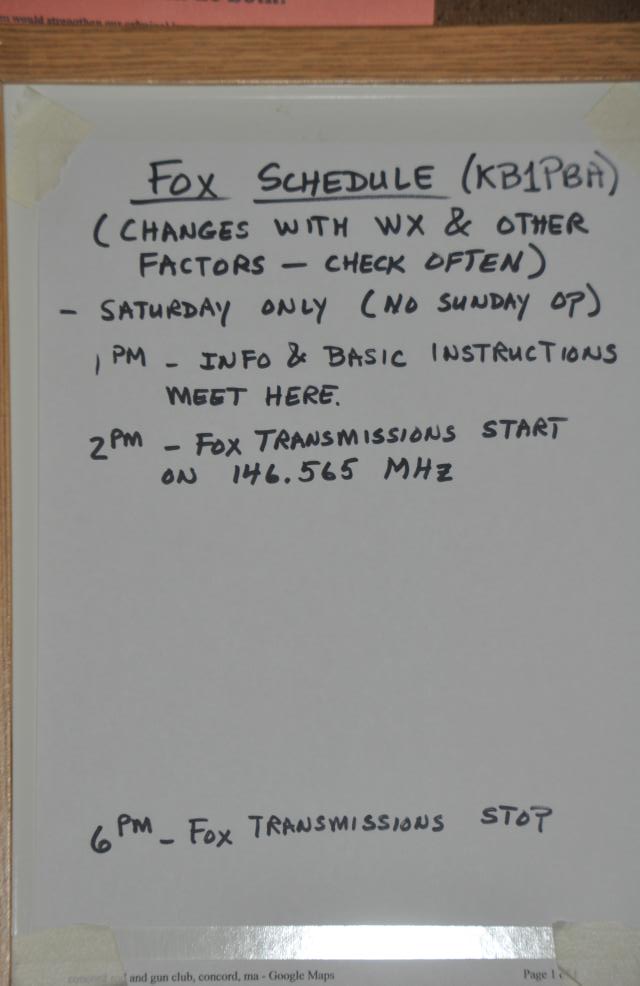 m would strengthen our
FOX SCHEDULE (KB1PBA)
(CHANGES WITH WX & OTHER
FACTORS — CHECK OFTEN)
- SATURDAY ONLY (NO SUNDAY OP)
1 PM - INFO & BASIC INSTRUCTIONS
MEET HERE.
2 PM - FOX TRANSMISSIONS START
ON 146.565 MHz
6 PM - FOX TRANSMISSIONS STOP
concord rod and gun club, concord, ma - Google Maps
Page 1